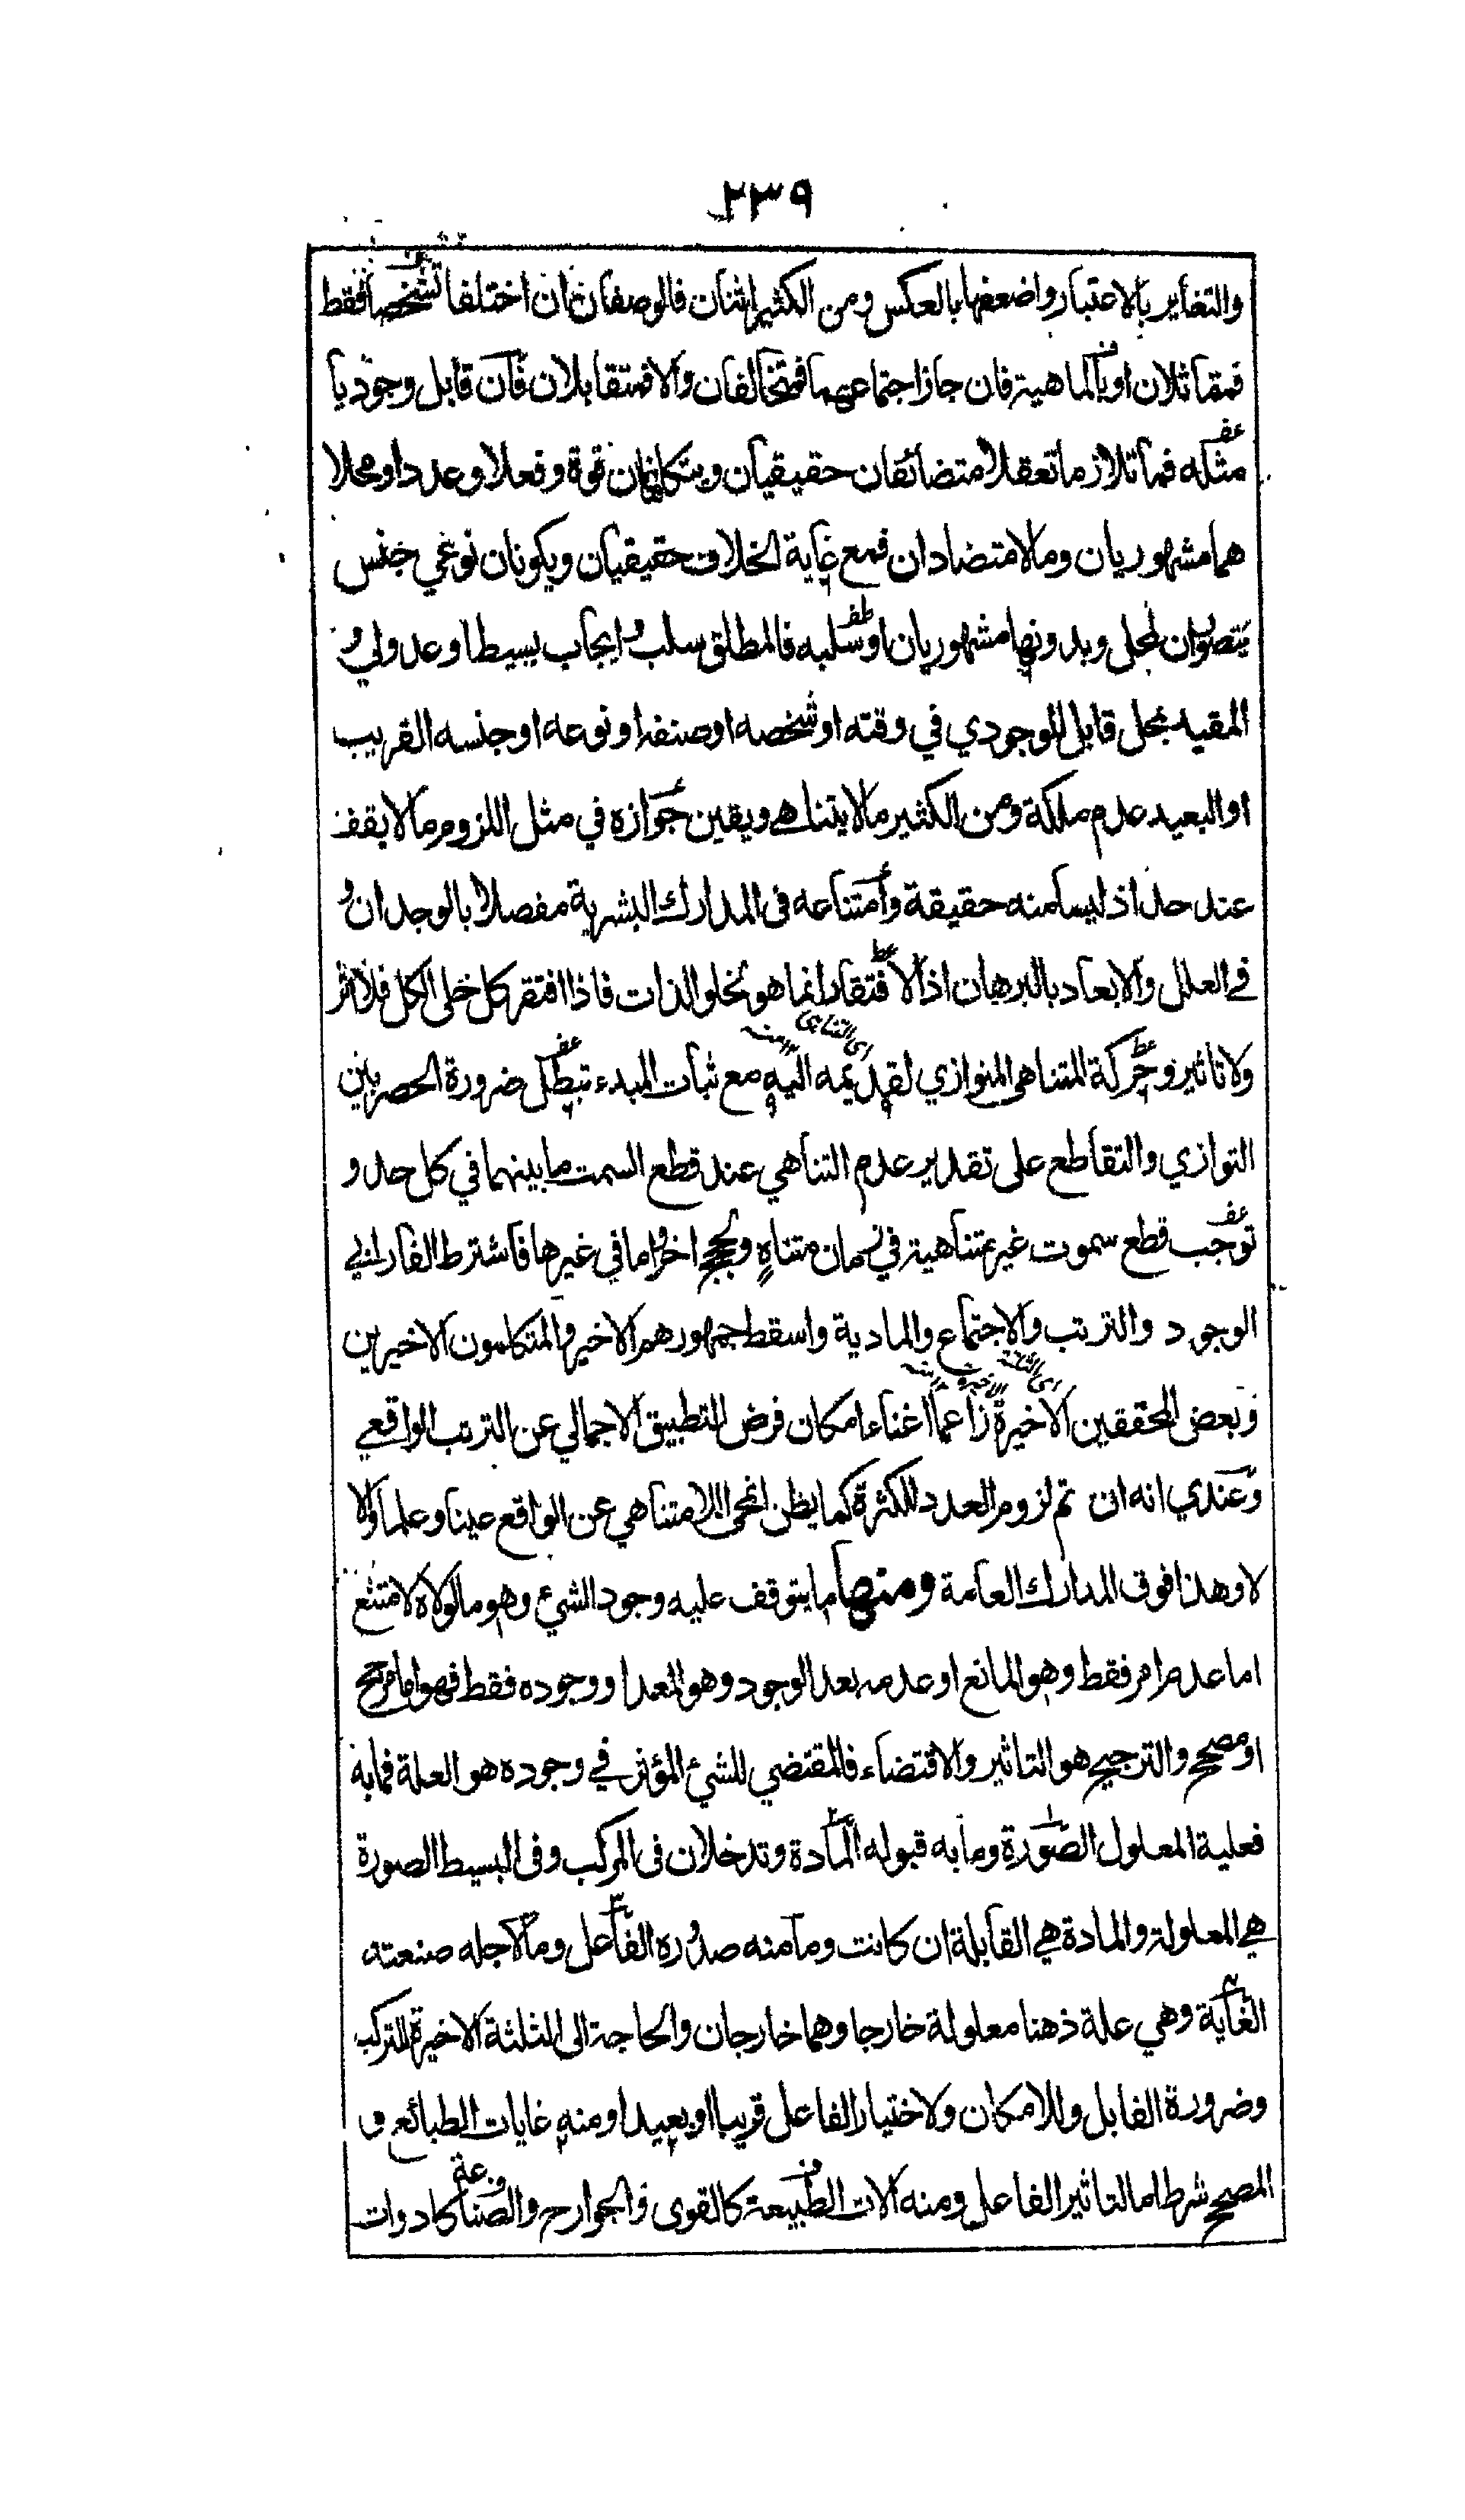 ٢٣٩
والتغاير بالاعتبار واضعفها بالعكس ومن الكثير اثنان فالوصفان فان اختلفا تشخصا فقط
فمتماثلان او بالماهية فان جاز اجتماعهما فمتخالفان والا فمتقابلان فان قابل وجوديا
مثله فما تلازما تعقلا متضائفان حقيقيان ويتكافئان قوة وفعلا وعددا ومحلا
هما مشهوريان ومالا متضادان فمع غاية الخلاف حقيقيان ويكونان نوعي جنس
لمحل وبدونها مشهوريان او سلبه فالمطلق سلب وايجاب بسيطا وعدولي و
المقيد بمحل قابل للوجودي في وقته او شخصه او صنفه او نوعه او جنسه القريب
او البعيد عدم ملكة ومن الكثير مالا يتناهى ويقين جوازه في مثل اللزوم مالا يقف
عند حد اذ ليسا منه حقيقة وامتناعه فى المدارك البشرية مفصلا بالوجدان و
في العلل والابعاد بالبرهان اذ الافتقار انما هو لخلو الذات فاذا افتقر كل خلى الكل فلا اثر
ولا تاثير وحركة المتناهى الموازي لقديمه اليه مع ثبات المبدء تبطل ضرورة الحصر بين
اى التناهى
التوازي والتقاطع على تقدير عدم التناهي عند قطع السمت ما بينهما في كل حد و
توجب قطع سموت غير متناهية في زمان متناهٍ ولحجج اخر واما في غيرها فاشترط الفارابي
الوجود والترتب والاجتماع والمادية واسقط جمهورهم الاخير والمتكلمون الاخيرين
وبعض المحققين الاخيرة زاعما اغناء امكان فرض التطبيق الاجمالي عن الترتب الواقعي
وعندي انه ان تم لزوم العدد للكثرة كما يظن انمحى اللا متناهي عن الواقع عينا وعلما والا
لا وهذا فوق المدارك العامة ومنها ما يتوقف عليه وجود الشيء وهو ما لولاه لامتنع
اما عدم امر فقط وهو المانع او عدمه بعد الوجود وهو المعد او وجوده فقط فهو اما مرجح
او مصحح والترجيح هو التاثير والاقتضاء فالمقتضي للشيء المؤثر في وجوده هو العلة فما به
فعلية المعلول الصورة وما به قبوله المادة وتدخلان فى المركب وفى البسيط الصورة
هي المعلولة والمادة هي القابلة ان كانت وما منه صدوره الفاعل وما لاجله صنعته
الغاية وهي علة ذهنا معلولة خارجا وهما خارجان والحاجة الى الثلثة الاخيرة للتركب
وضرورة القابل وللامكان ولاختيار الفاعل قريبا او بعيدا ومنه غايات الطبائع و
المصحح شرط اما لتاثير الفاعل ومنه آلات الطبيعة كالقوى والجوارح والصناعة كادوات